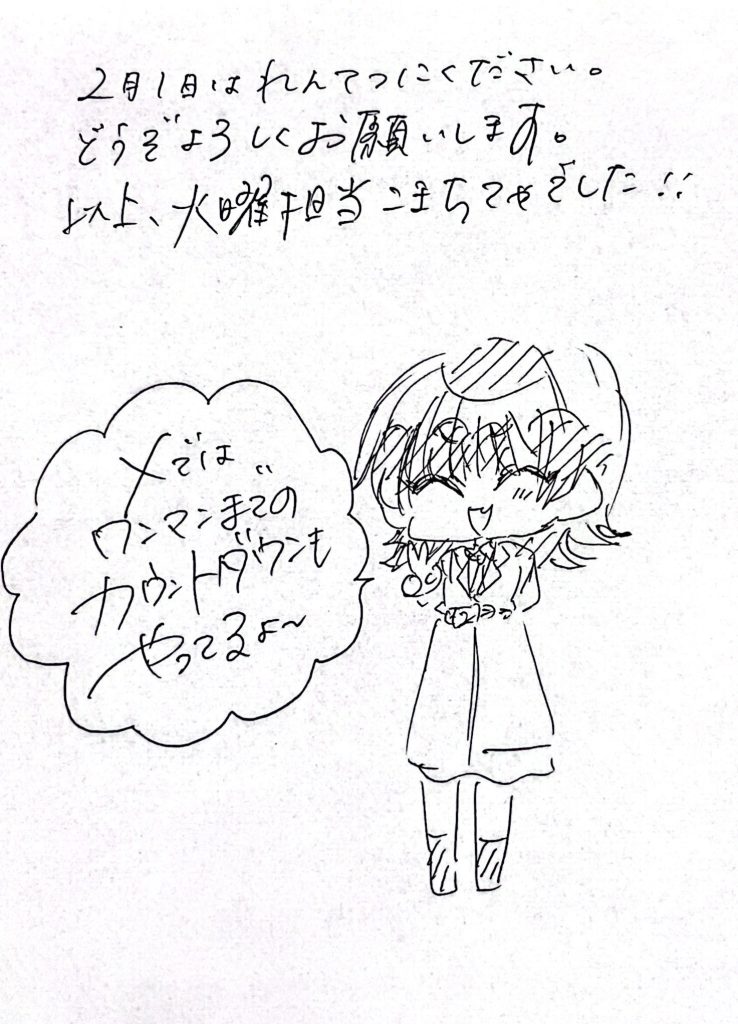 2月1日は れんてつにください。
どうぞよろしくお願いします。
以上、火曜担当こまちてゃでした!!
Xでは
ワンマンまでの
カウントダウンも
やってるよ〜